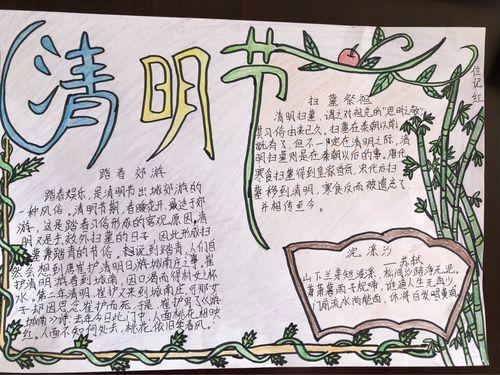 清明节
位记红
扫墓祭祖
清明扫墓，谓之对祖先的“思时之敬”
其习俗由来已久，扫墓在秦朝以前
就有了，但不一定在清明之际，清
明扫墓则是在秦朝以后的事。唐代
寒食扫墓得到皇家首肯，宋代后扫
墓移到清明，寒食反而被遗忘了
并相传至今。
踏春郊游
踏春娱乐，是清明节出城郊游的
一种风俗，清明节期，春暖花开，最适于郊
游，这是踏春习俗形成的客观原因。清
明又是去郊外扫墓的日子，因此形成扫
墓兼踏春的节俗。说到踏青，人们自
然会想到唐崔护清明日游城南庄，崔
护清明游春到城南，因口渴而得村女一杯
水，第二年清明，崔护又来到城南庄，可那女
子却因思念崔护而死，于是崔护写《游
城南》诗：去年今日此门中，人面桃花相映
红。人面不知何处去，桃花依旧笑春风。
浣溪沙
——苏轼
山下兰芽短浸溪，松间沙路净无泥，
萧萧暮雨子规啼，谁道人生无再少，
门前流水尚能西，休将白发唱黄鸡。